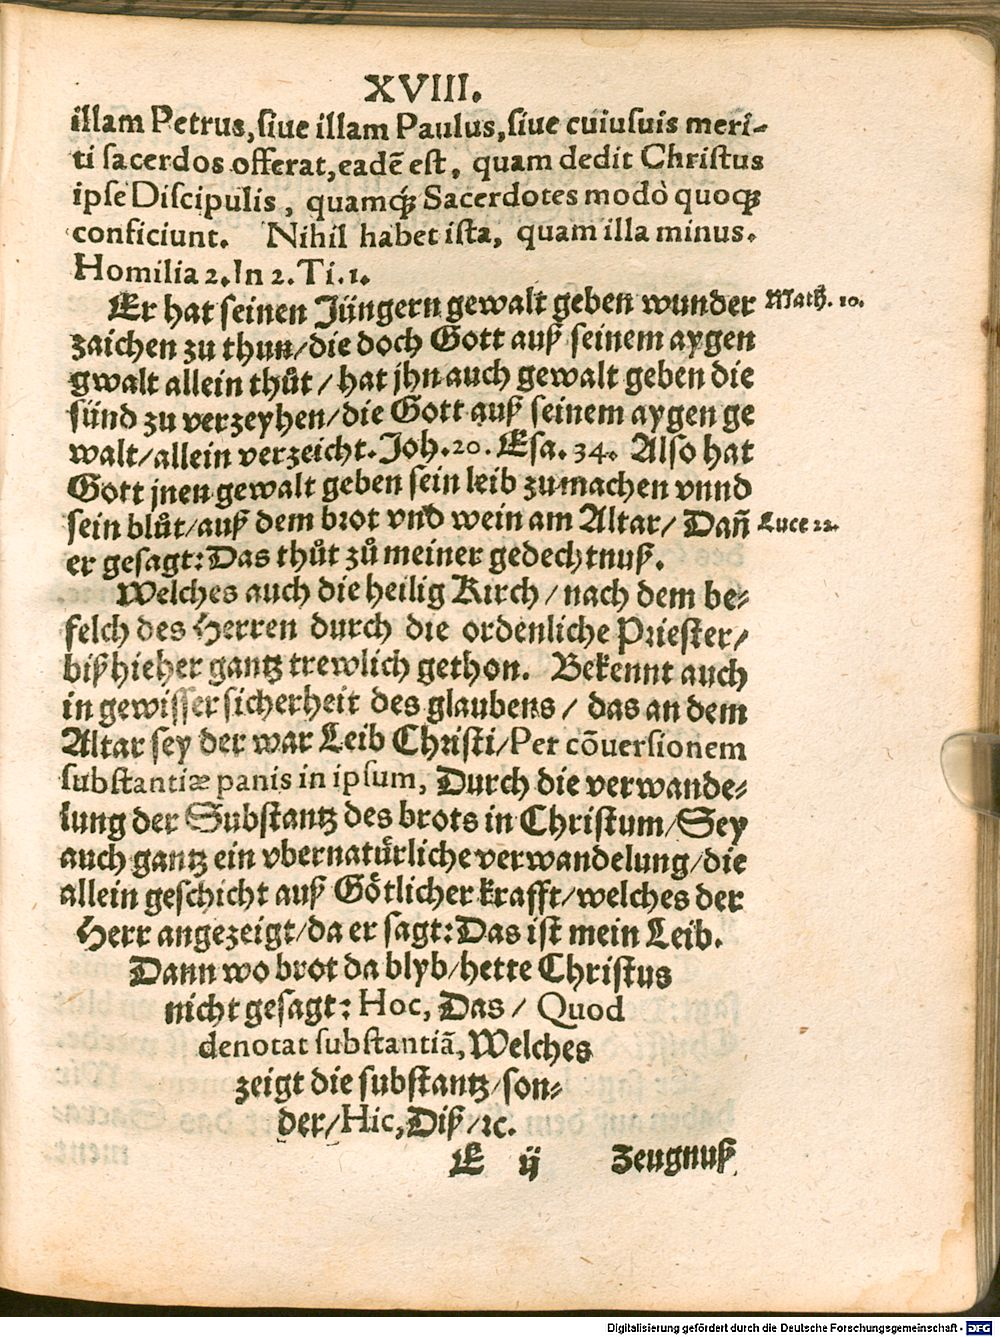 XVIII.
illam Petrus, ſiue illam Paulus, ſiue cuiuſuis meri-
ti ſacerdos offerat, eadẽ eſt, quam dedit Chriſtus
ipſe Diſcipulis, quamqꝫ Sacerdotes modò quoqꝫ
conficiunt. Nihil habet iſta, quam illa minus.
Homilia 2. In 2. Ti. 1.
Er hat ſeinen Jüngern gewalt geben wunder Math. 10.
zaichen zu thun/die doch Gott auß ſeinem aygen
gwalt allein thůt / hat jhn auch gewalt geben die
ſünd zu verzeyhen/die Gott auß ſeinem aygen ge
walt/allein verzeicht. Joh. 20. Eſa. 34. Alſo hat
Gott jnen gewalt geben ſein leib zu machen vnnd
ſein blůt/auß dem brot vnd wein am Altar/ Dañ Luce 22.
er geſagt: Das thůt zů meiner gedechtnuß.
Welches auch die heilig Kirch / nach dem be⸗
felch des Herren durch die ordenliche Prieſter/
biß hieher gantz trewlich gethon. Bekennt auch
in gewiſſer ſicherheit des glaubens / das an dem
Altar ſey der war Leib Chriſti/Per cõuerſionem
ſubſtantiæ panis in ipſum, Durch die verwande⸗
lung der Subſtantz des brots in Chriſtum/Sey
auch gantz ein vbernatürliche verwandelung/die
allein geſchicht auß Götlicher krafft/welches der
Herr angezeigt/da er ſagt: Das iſt mein Leib.
Dann wo brot da blyb/hette Chriſtus
nicht geſagt: Hoc, Das / Quod
denotat ſubſtantiã, Welches
zeigt die ſubſtantz/ſon⸗
der/Hic, Diß/ꝛc.
E ij Zeugnuß
Digitalisierung gefördert durch die Deutsche Forschungsgemeinschaft - DFG